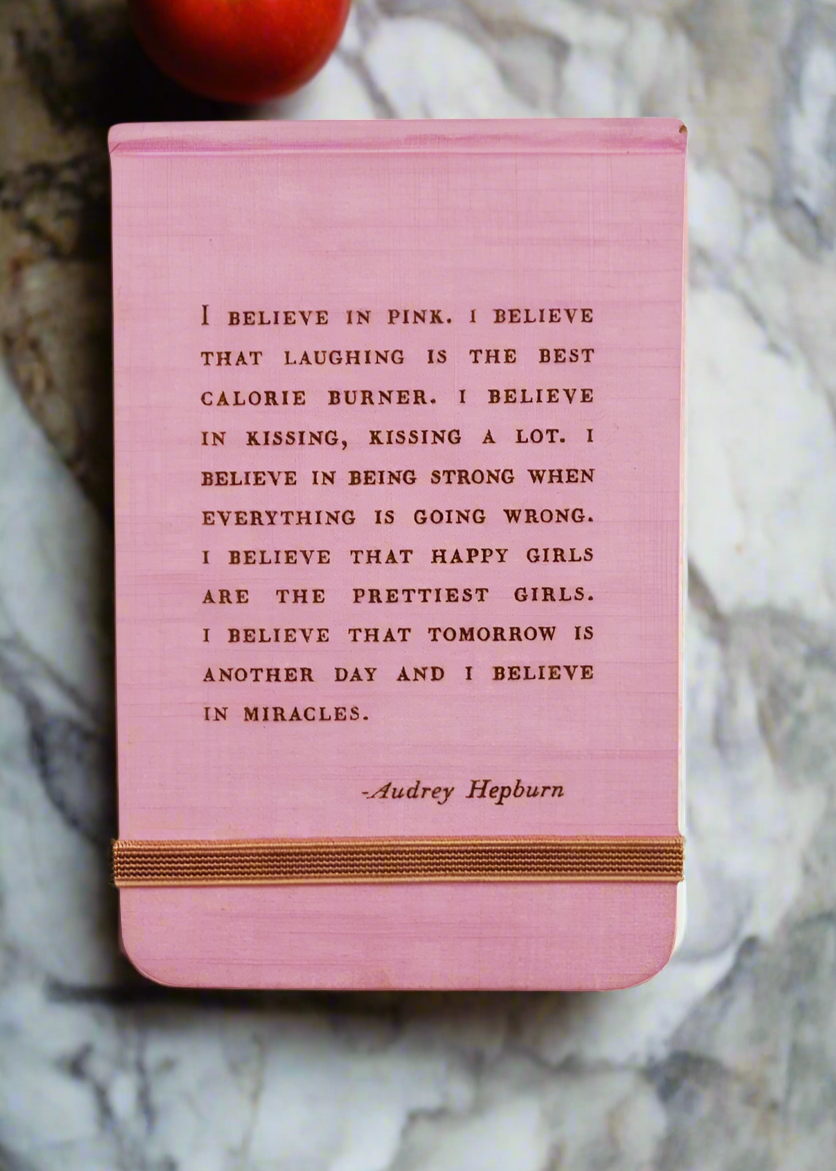 I BELIEVE IN PINK. I BELIEVE
THAT LAUGHING IS THE BEST
CALORIE BURNER. I BELIEVE
IN KISSING, KISSING A LOT. I
BELIEVE IN BEING STRONG WHEN
EVERYTHING IS GOING WRONG.
I BELIEVE THAT HAPPY GIRLS
ARE THE PRETTIEST GIRLS.
I BELIEVE THAT TOMORROW IS
ANOTHER DAY AND I BELIEVE
IN MIRACLES.
-Audrey Hepburn